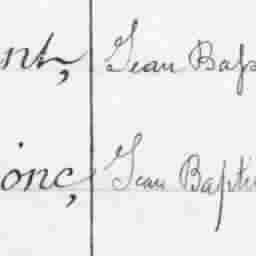 nt, Jean Bap
ionc, Jean Baptis